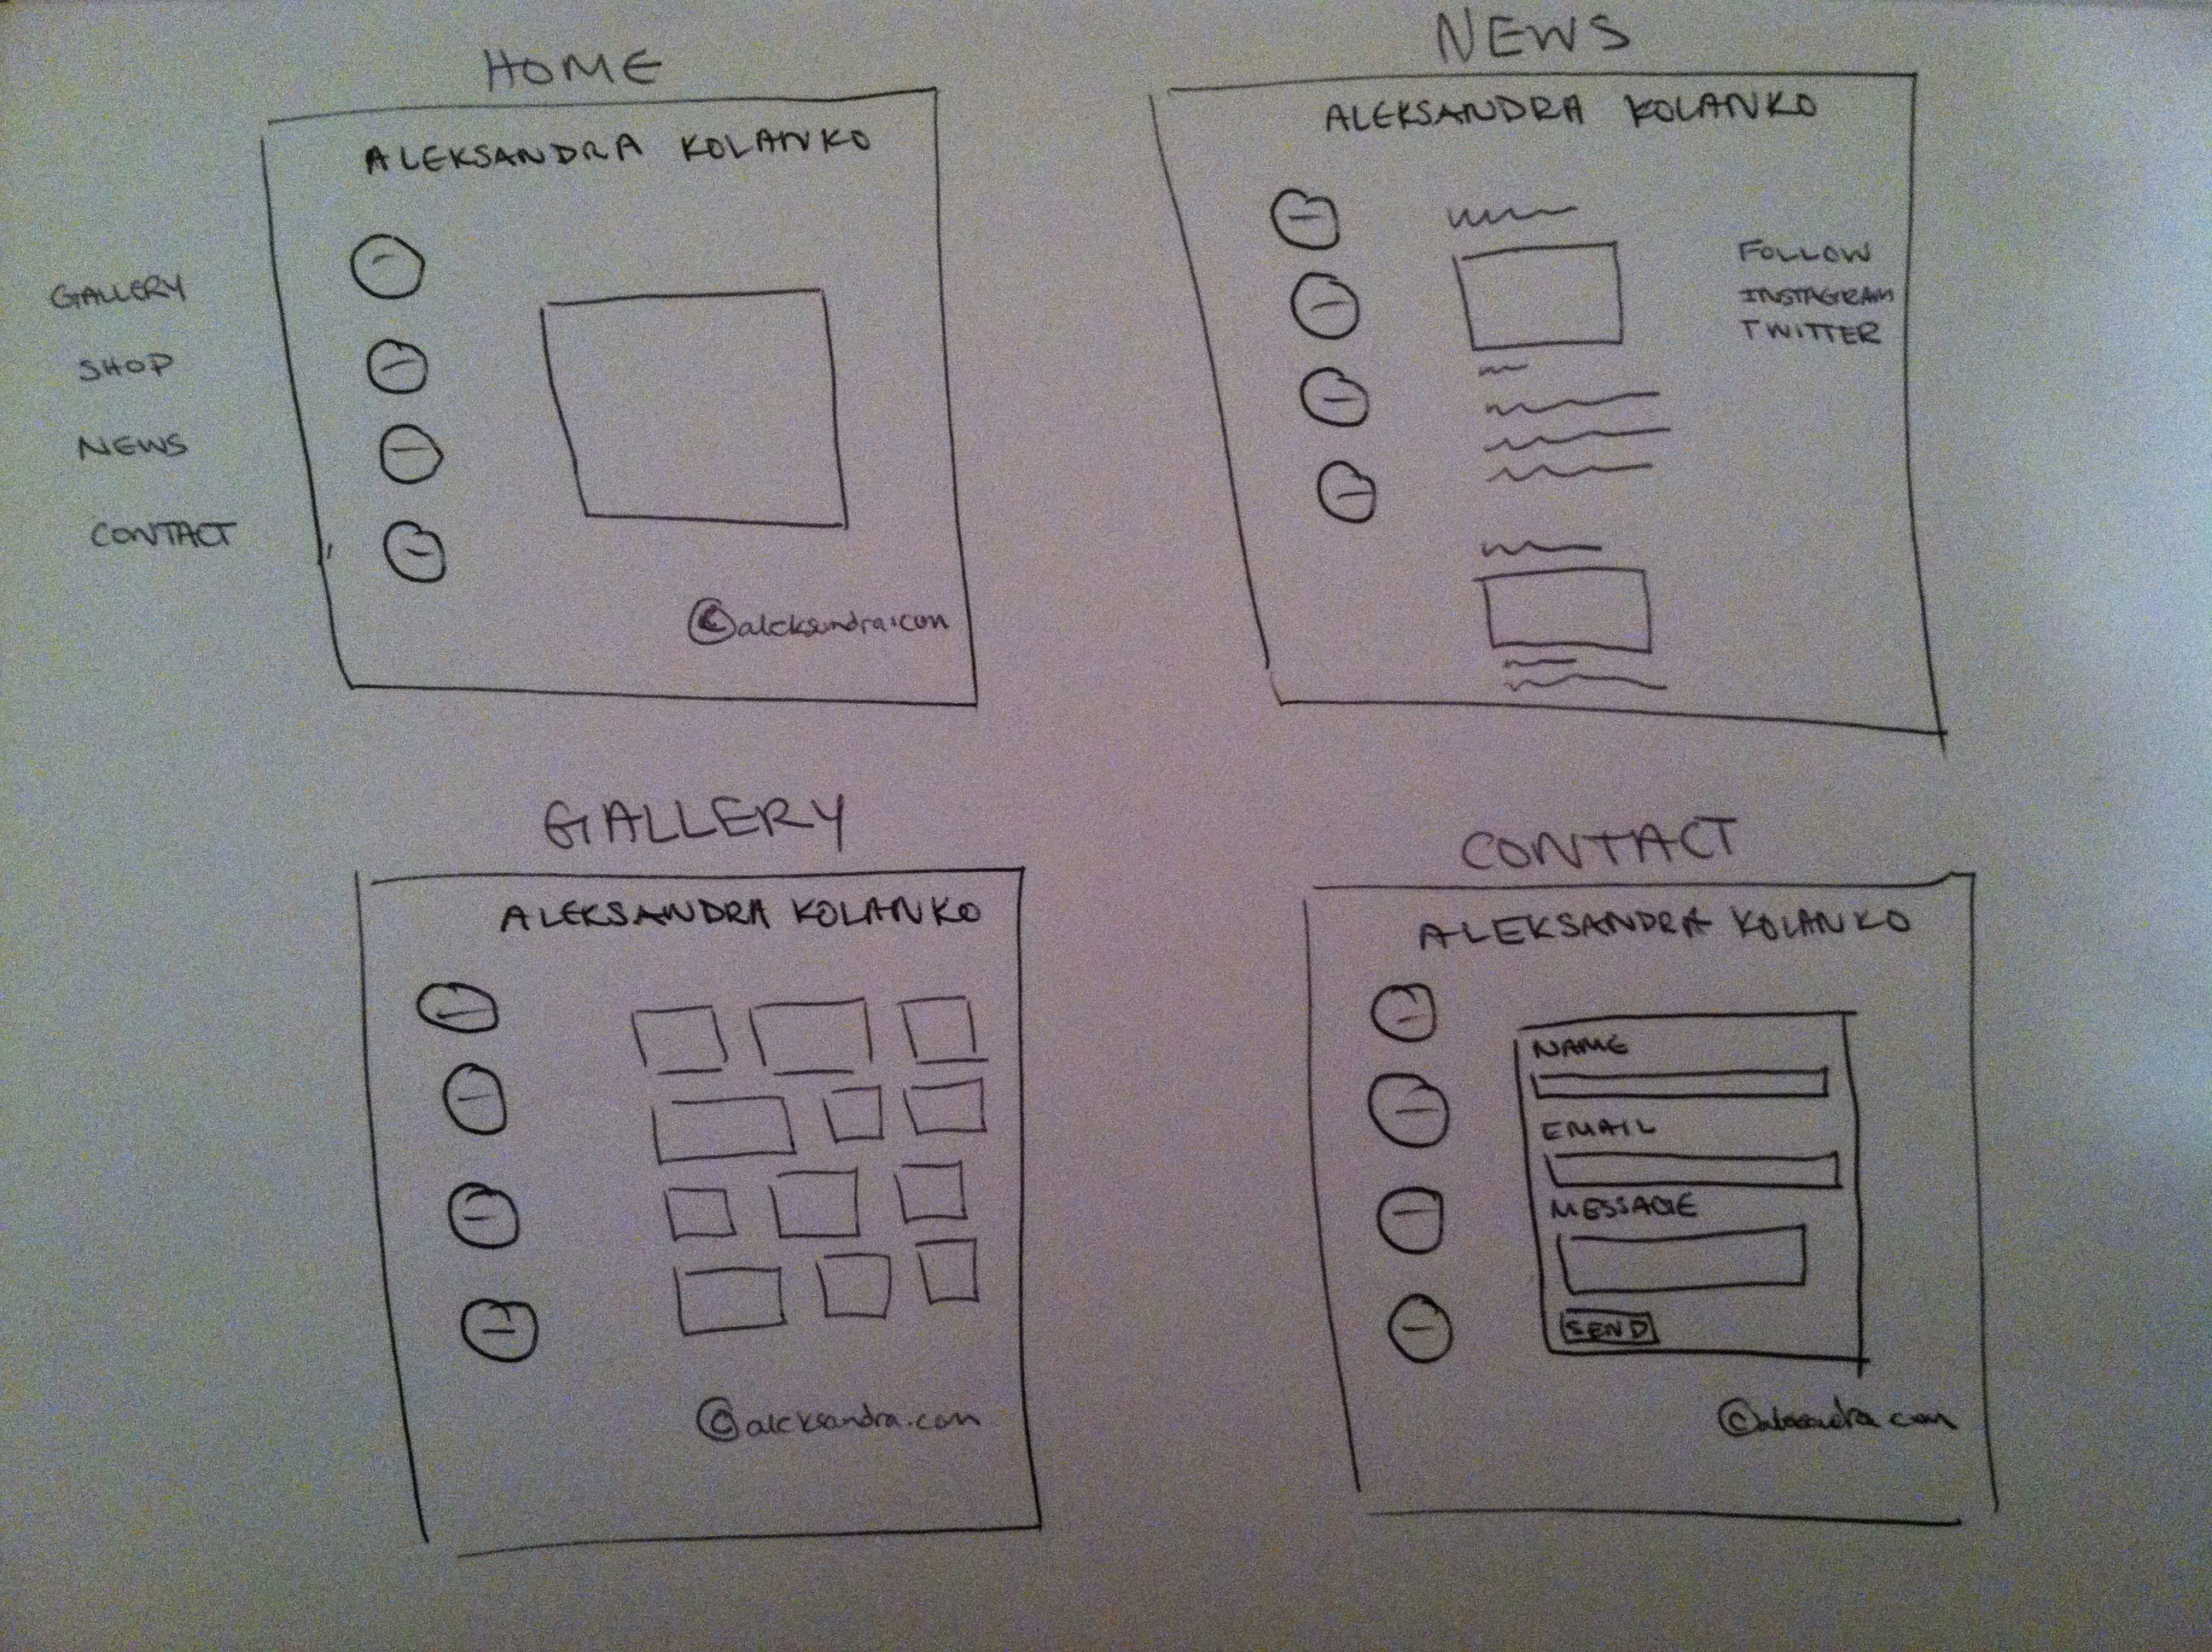 HOME
ALEKSANDRA KOLANKO
GALLERY
SHOP
NEWS
CONTACT
©aleksandra.com
NEWS
ALEKSANDRA KOLANKO
FOLLOW
INSTAGRAM
TWITTER
GALLERY
ALEKSANDRA KOLANKO
©aleksandra.com
CONTACT
ALEKSANDRA KOLANKO
NAME
EMAIL
MESSAGE
SEND
©aleksandra.com